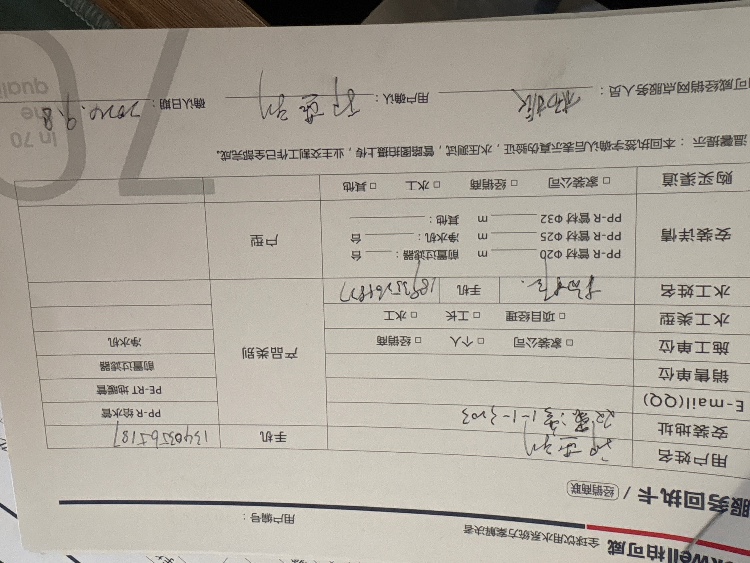 kwell柏可威 全球饮用水系统方案解决者
用户编号：
服务回执卡 / 经销商联
用户姓名 手机 13403565187
安装地址 1-1-3203
E-mail(QQ)
销售单位
施工单位 □ 家装公司 □ 个人 □ 经销商
水工类型 □ 项目经理 □ 工长 □ 水工
水工姓名 手机
产品类别
PP-R 给水管
PE-RT 地暖管
前置过滤器
净水机
安装详情
PP-R 管材 Φ20 m 前置过滤器： 台
PP-R 管材 Φ25 m 净水机： 台
PP-R 管材 Φ32 m 其他：
户型
购买渠道 □ 家装公司 □ 经销商 □ 水工 □ 其他
温馨提示：本回执签字确认后表示真伪验证，水压测试，管路图拍摄上传，业主交割工作已全部完成。
可威经销网点服务人员： 用户确认： 确认日期：2024.9.8
In 70
the
quali
70